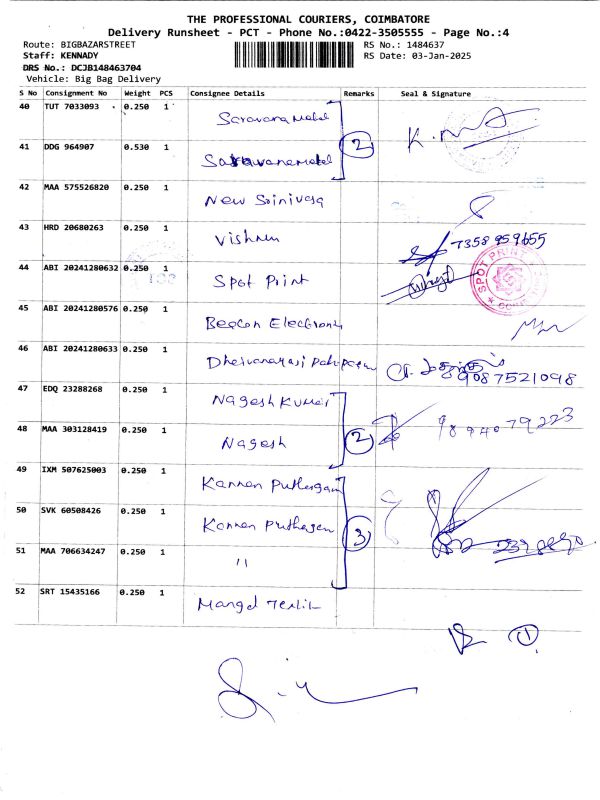 THE PROFESSIONAL COURIERS, COIMBATORE
Delivery Runsheet - PCT - Phone No.:0422-3505555 - Page No.:4
Route: BIGBAZARSTREET RS No.: 1484637
Staff: KENNADY RS Date: 03-Jan-2025
DRS No.: DCJB148463704
Vehicle: Big Bag Delivery
S No Consignment No Weight PCS Consignee Details Remarks Seal & Signature
40 TUT 7033093 0.250 1 Saravana Metal 2
41 DDG 964907 0.530 1 Saravana Metal
42 MAA 575526820 0.250 1 New Srinivasa
43 HRD 20680263 0.250 1 Vishnu 7358959655
44 ABI 20241280632 0.250 1 Spot Print SPOT PRINT
45 ABI 20241280576 0.250 1 Beacon Electronic
46 ABI 20241280633 0.250 1 9087521098
47 EDQ 23288268 0.250 1 Nagesh Kumar 2
48 MAA 303128419 0.250 1 Nagesh 9894079223
49 IXM 507625003 0.250 1 Kannan
50 SVK 60508426 0.250 1 Kannan 3
51 MAA 706634247 0.250 1 "
52 SRT 15435166 0.250 1 Mangal
1